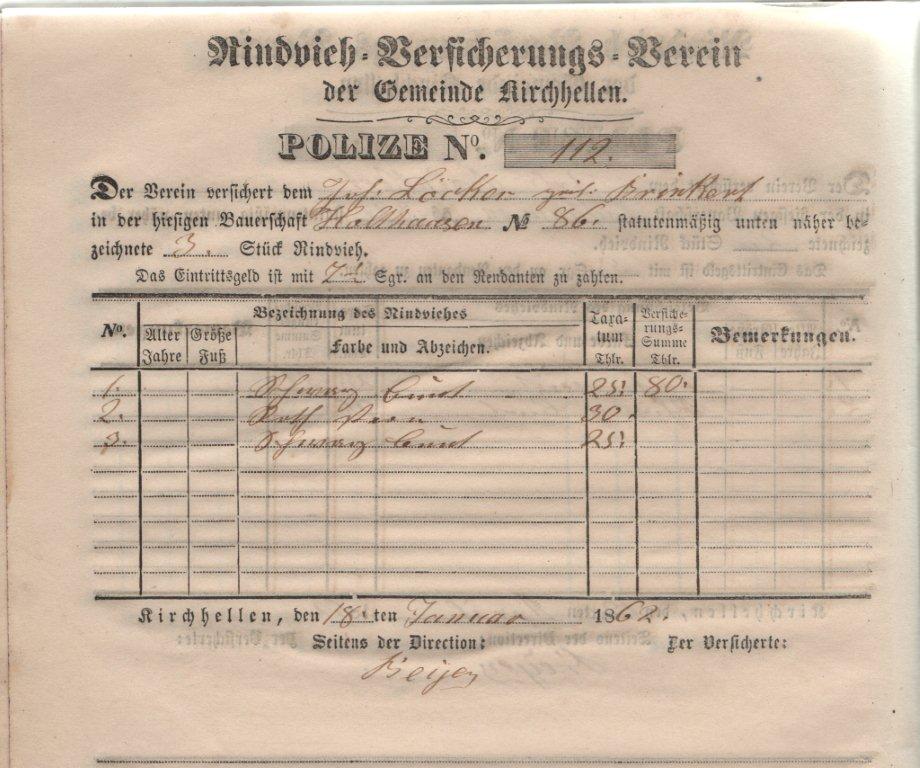 Rindvieh-Versicherungs-Verein
der Gemeinde Kirchhellen.
POLIZE No. 112.
Der Verein versichert dem Joh: Löcker gnt: Brinkert
in der hiesigen Bauerschaft Holthausen № 86. statutenmäßig unten näher be-
zeichnete 3. Stück Rindvieh.
Das Eintrittsgeld ist mit 7½ Sgr. an den Rendanten zu zahlen.
No. Alter Jahre Größe Fuß Bezeichnung des Rindviehes Farbe und Abzeichen. Taxa-tum Thlr. Versiche-rungs-Summe Thlr. Bemerkungen.
1. Schwarz bunt 25. 80.
2. Roth 30.
3. Schwarz bunt 25.
Kirchhellen, den 18.ten Januar 1862.
Seitens der Direction: Der Versicherte: